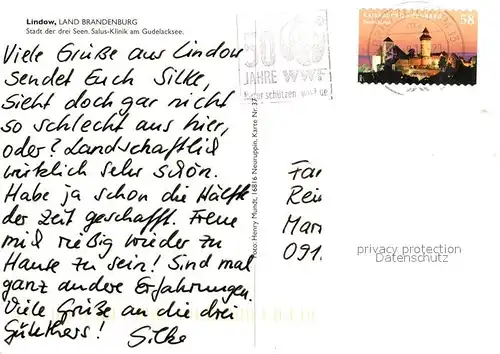 Lindow, LAND BRANDENBURG
Stadt der drei Seen. Salus-Klinik am Gudelacksee.
Viele Grüße aus Lindow
sendet Euch Silke,
Sieht doch gar nicht
so schlecht aus hier,
oder? Landschaftlich
wirklich sehr schön.
Habe ja schon die Hälfte
der Zeit geschafft. Freue
mich riesig wieder zu
Hause zu sein! Sind mal
ganz andere Erfahrungen.
Viele Grüße an die drei
Silke
Foto: Henry Mundt, 16816 Neuruppin, Karte Nr. 37
50
JAHRE WWF
Natur schützen wwf.de
58
Fa
Rei
Mar
091
privacy protection
Datenschutz